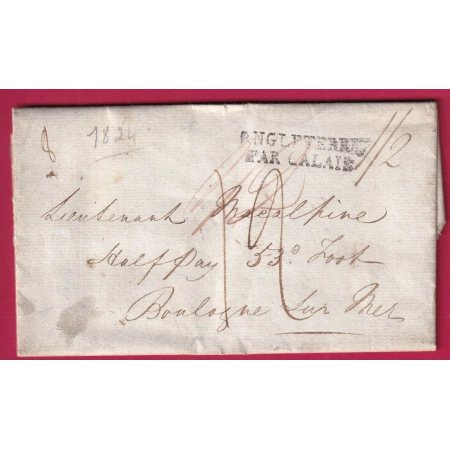 1824
ANGLETERRE
PAR CALAIS
1/2
Lieutenant Macalpine
Half Pay 53d Foot
Boulogne Sur Mer